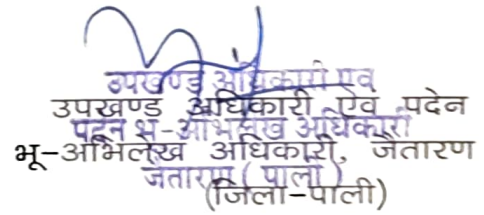 उपखण्ड अधिकारी एवं
उपखण्ड अधिकारी एंव पदेन
पदेन भू-अभिलेख अधिकारी
भू-अभिलेख अधिकारी, जैतारण
जैतारण ( पाली )
(जिला-पाली)